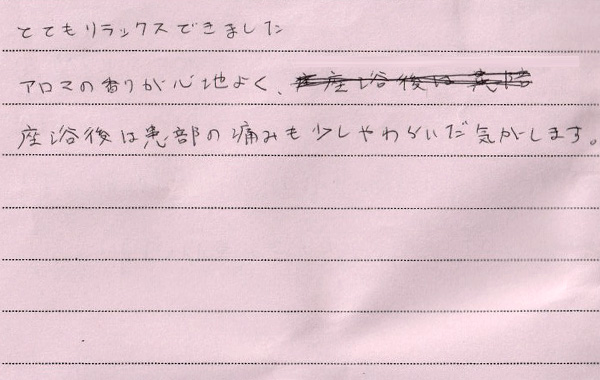 とてもリラックスできました
アロマの香りが心地よく、
座浴後は患部の痛みも少しやわらいだ気がします。